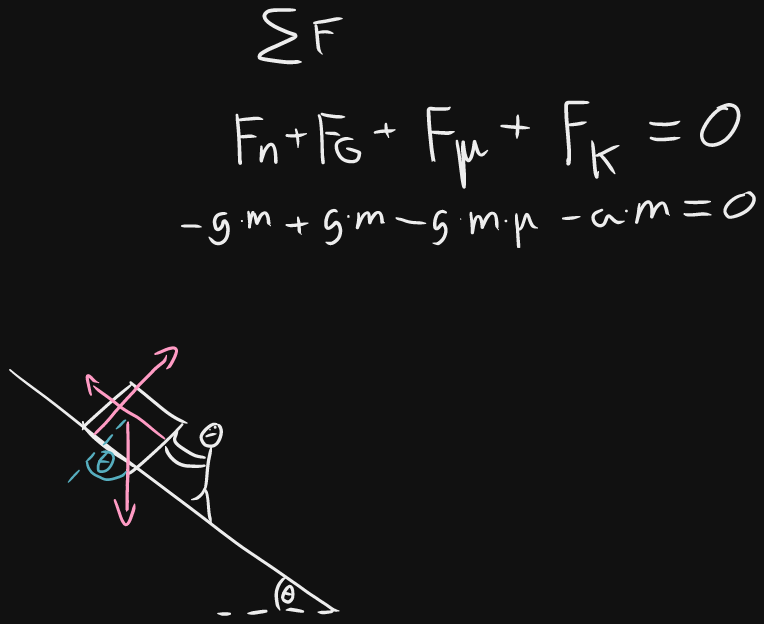 ∑F
Fn + FG + Fμ + FK = 0
-g·m + g·m - g·m·μ - a·m = 0
θ
θ